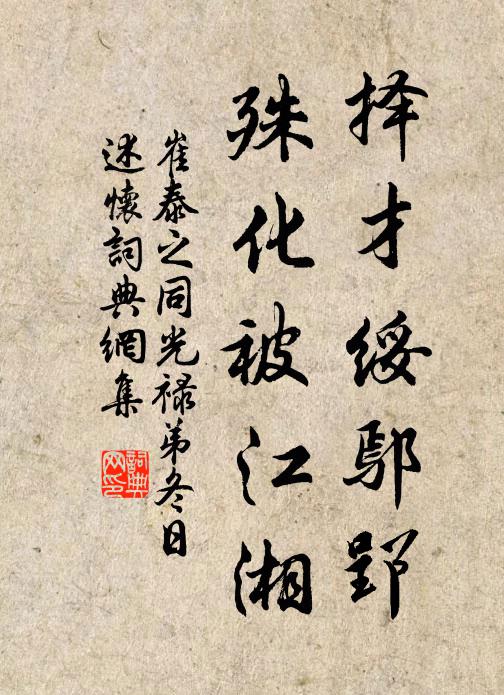 择才绥鄢郢
殊化被江湘
崔泰之同光禄弟冬日
述懷詞典網集
詞典网印